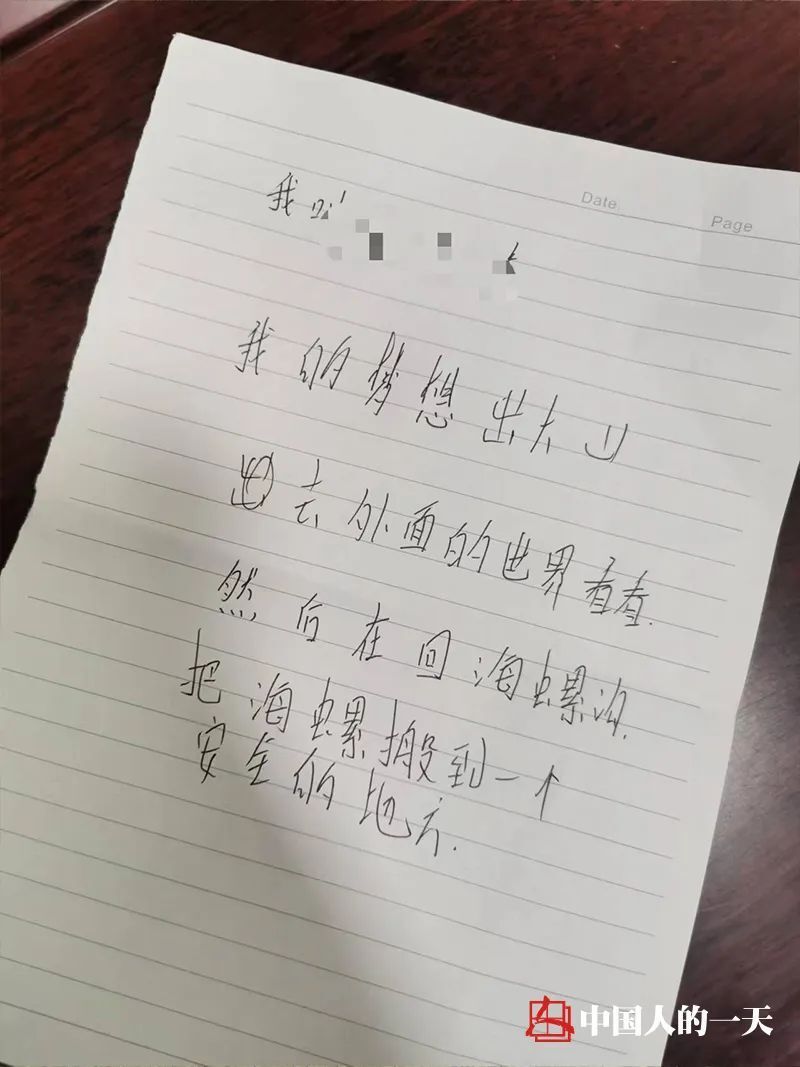 Date.
Page
我叫
我的梦想出大山
出去外面的世界看看.
然后在回海螺沟.
把海螺搬到一个
安全的地方.
中国人的一天